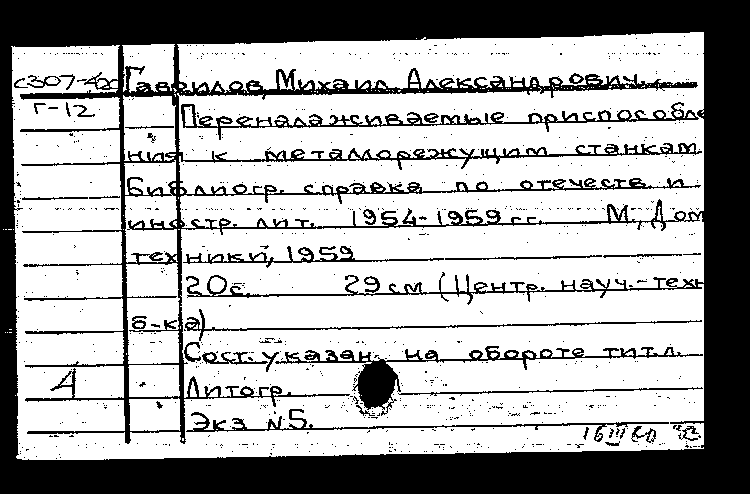 Гаврилов, Михаил Александрович.
Г-12
Переналаживаемые приспособле
ния к металлорежущим станкам.
Библиогр. справка по отечеств. и
иностр. лит. 1954-1959 гг. М., Дом
техники, 1959
20с. 29 см (Центр. науч.-техн
б-ка).
Сост. указан. на обороте тит.л.
А Литогр.
Экз №5.
16 III 60